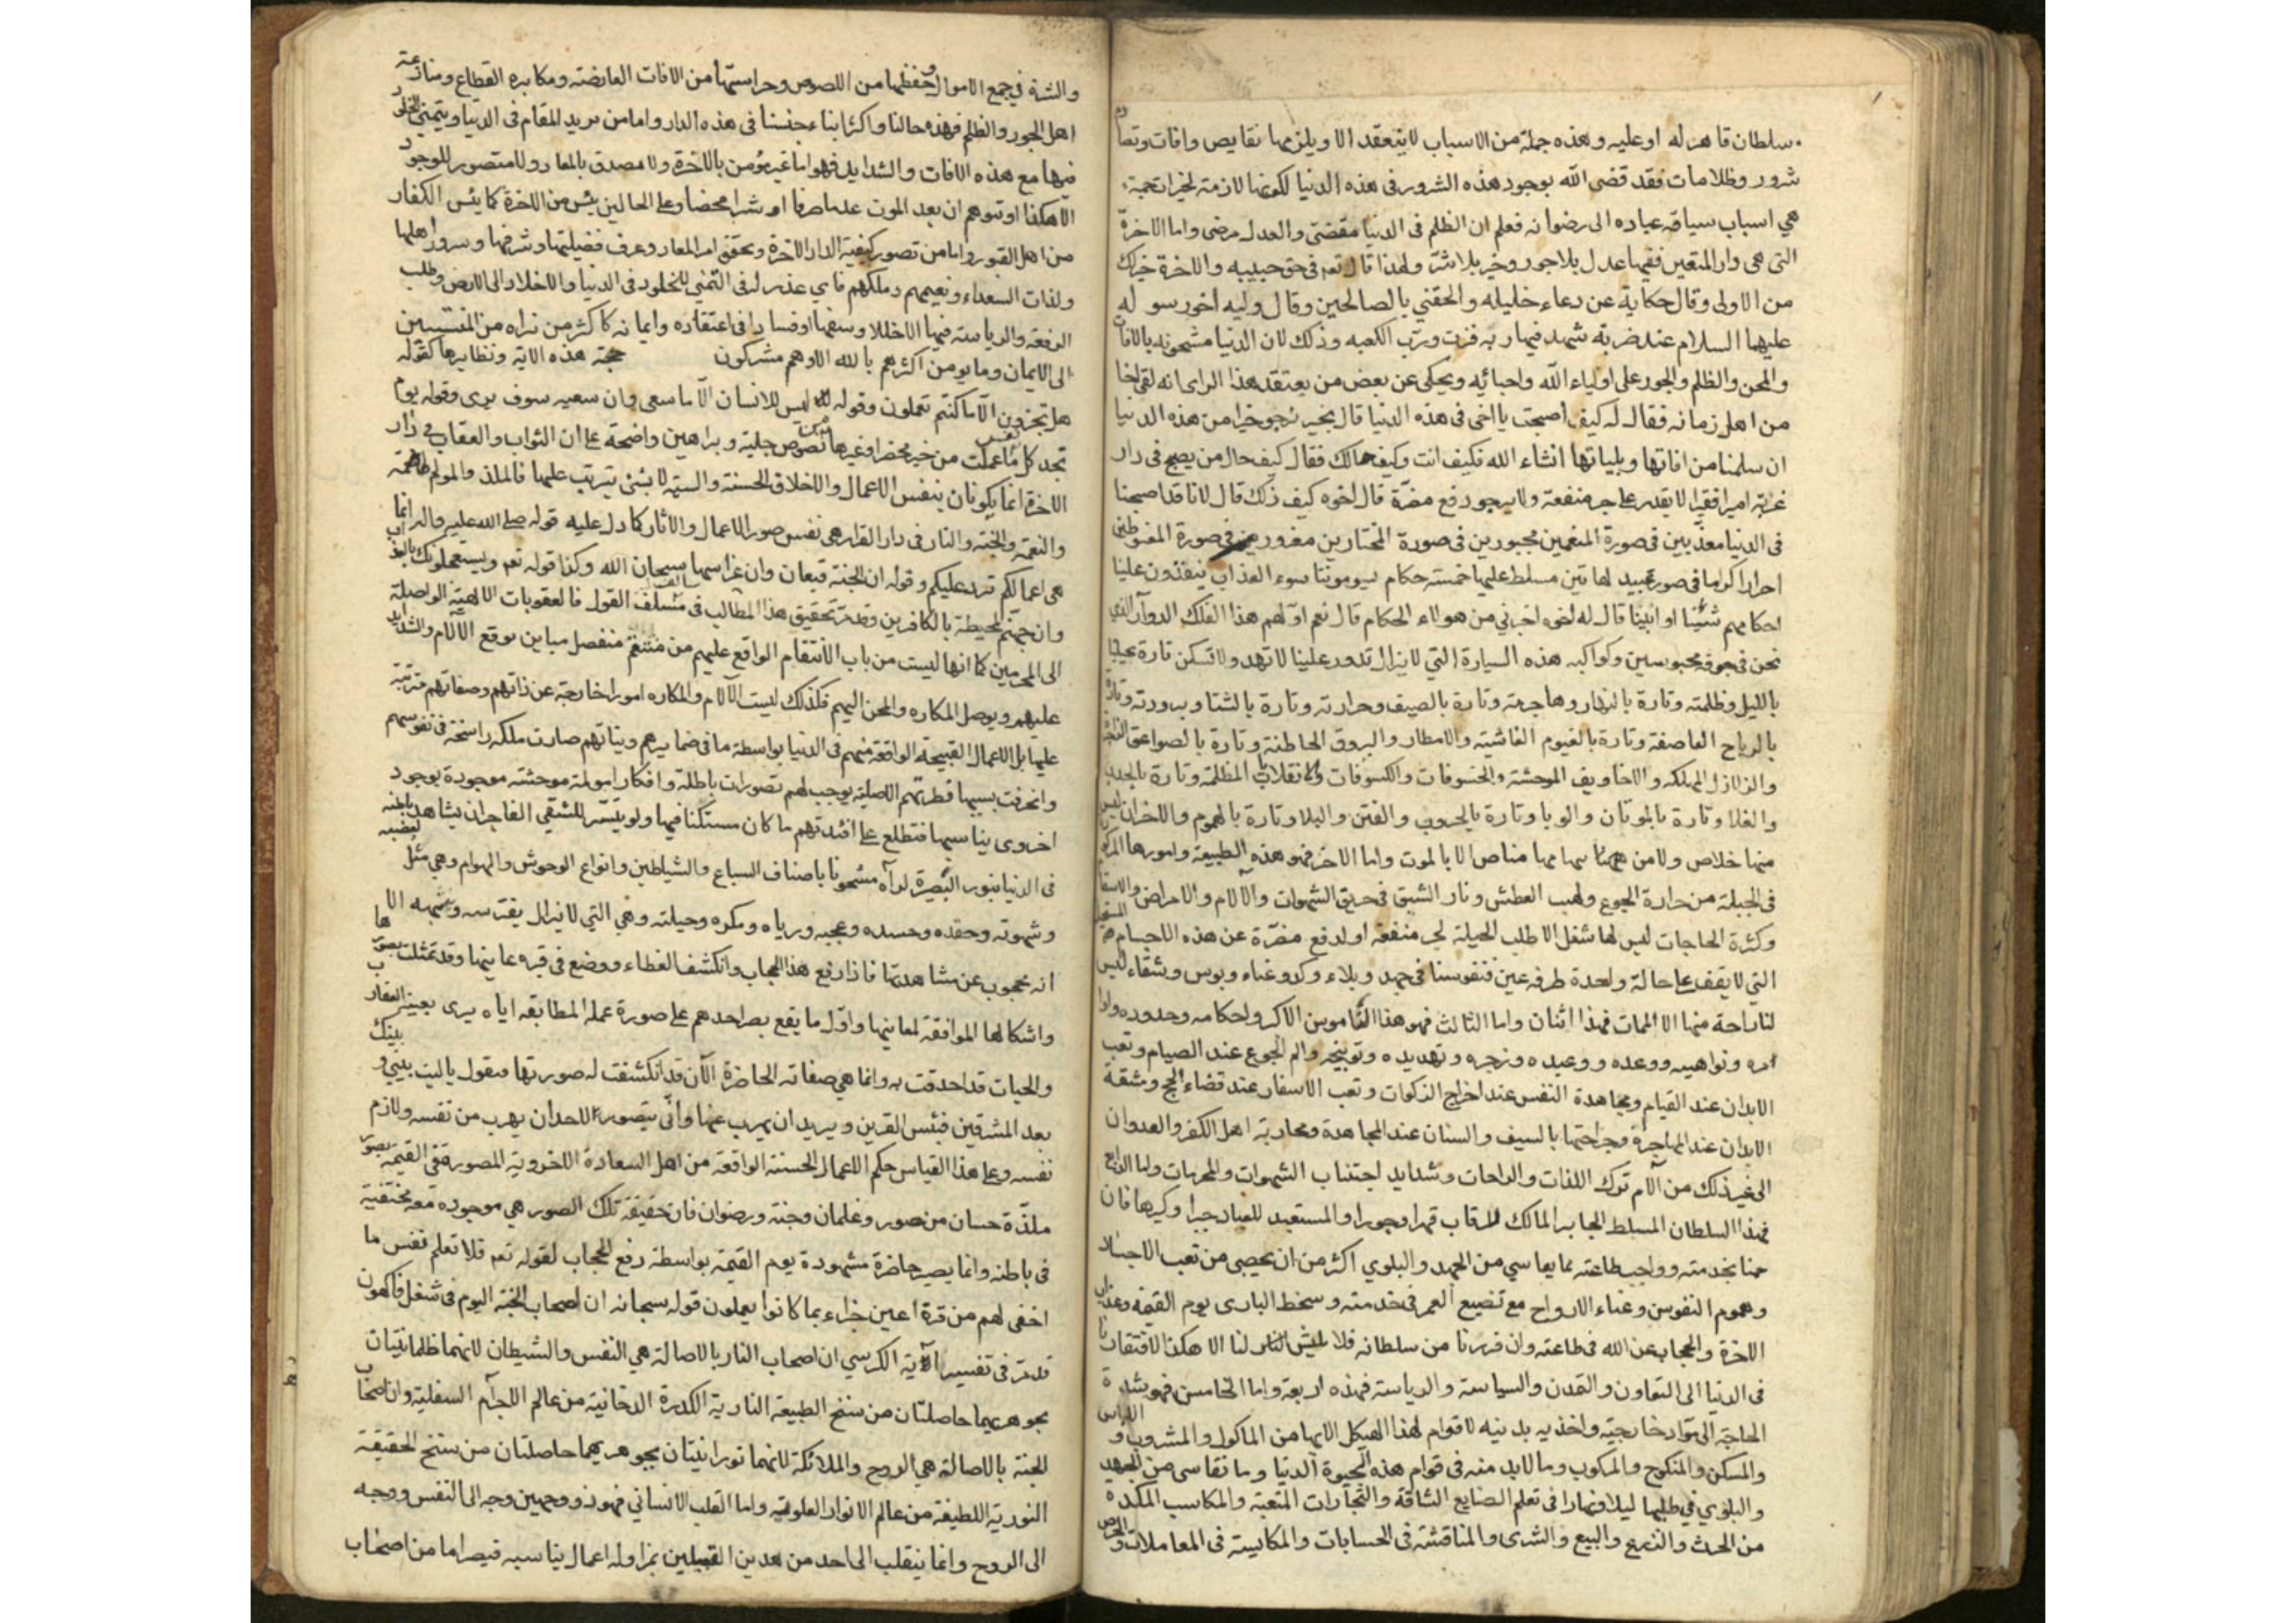 سلطان قاهر له او عليه وهذه جملة من الاسباب لا ينعقد الا ويلزمها نقايص وافات وتصادم
شرور وظلامات فقد قضى الله بوجود هذه الشرور فى هذه الدنيا لكونها لازمة لخيرات جمة
هي اسباب سياقة عباده الى رضوانه فعلم ان الظلم فى الدنيا مقضى والعدل مرضى واما الاخرة
التى هى دار المتقين ففيها عدل بلا جور وخير بلا شر ولهذا قال تعه فى حق حبيبه والاخرة خير لك
من الاولى وقال حكاية عن دعاء خليله والحقني بالصالحين وقال وليه اخو رسوله
عليهما السلام عند ضربة شهد فيها ربه فزت ورب الكعبه وذلك لان الدنيا مشحونه بالافات
والمحن والظلم والجور على اولياء الله واحبائه ويحكى عن بعض من يعتقد هذا الراى انه لقى اخا
من اهل زمانه فقال له كيف اصبحت يا اخى فى هذه الدنيا قال بخير نرجو خيرا من هذه الدنيا
ان سلمنا من افاتها وبلياتها انشاء الله فكيف انت وكيف حالك فقال كيف حال من يصبح فى دار
غربة اميرا فقيرا لا يقدر على جر منفعة ولا يرجو دفع مضرة قال اخوه كيف ذلك قال لانا قد اصبحنا
فى الدنيا معذبين فى صورة المنعمين مجبورين فى صورة المختارين مغرورين فى صورة المغبوطين
احرارا كراما فى صور عبيد لها تين مسلط عليها خمسة حكام يسوموننا سوء العذاب ينفذون علينا
احكامهم شئنا او ابينا قال له اخوه اخبرني من هولاء الحكام قال نعم اولهم هذا الفلك الدوار الذي
نحن فى جوفه محبوسين وكواكبه هذه السيارة التي لا يزال تدور علينا لا تهدء ولا تسكن تارة يجيئنا
بالليل وظلمته وتارة بالنهار وهاجرته وتارة بالصيف وحرارته وتارة بالشتا وبرودته وتارة
بالرياح العاصفة وتارة بالغيوم الغاشية والامطار والبروق الخاطفة وتارة بالصواعق
والزلازل المهلكه والاخاويف الموحشة والخسوفات والكسوفات والانقلابات المظلمة وتارة بالجدب
والغلا وتارة بالموتان والوبا وتارة بالحروب والفتن والبلا وتارة بالهموم والاحزان ليس
منها خلاص ولا من سهامها مناص الا بالموت واما الاخر فهو هذه الطبيعة وامورها المركوزة
فى الجبلة من حرارة الجوع ولهب العطش ونار الشبق فى حريق الشهوات والالام والامراض والاسقام
وكثرة الحاجات ليس لها شغل الا طلب الحيلة لجر منفعة او لدفع مضرة عن هذه الاجسام المستحيلة
التي لا يقف على حالة واحدة طرفه عين فنفوسنا فى جهد وبلاء وكد وعناء وبوس وشقاء ليس
لنا راحة منها الا الممات فهذا اثنان واما الثالث فهو هذا الناموس الاكبر واحكامه وحدوده واوا
امره ونواهيه ووعده ووعيده وزجره وتهديده وتوبيخه والم الجوع عند الصيام وتعب
الابدان عند القيام ومجاهدة النفس عند اخراج الزكوات وتعب الاسفار عند قضاء الحج ومشقة
الابدان عند المهاجرة وجراحتها بالسيف والسنان عند المجاهدة ومحاربة اهل الكفر والعدوان
الى غير ذلك من آلام ترك اللذات والراحات وشدايد اجتناب الشهوات والمحرمات واما الرابع
فهذا السلطان المسلط الجابر المالك للرقاب قهرا وجورا والمستعبد للعباد جبرا وكرها فان
خدمته وواجب طاعته مما يقاسي من الجهد والبلوي اكثر من ان يحصى من تعب الاجساد
وهموم النفوس وعناء الارواح مع تضييع العمر فى خدمته وسخط البارى يوم القيمة وعذاب
الاخرة والحجاب عن الله فى طاعته وان فررنا من سلطانه فلا عيش لنا الا هكذا لافتقارنا
فى الدنيا الى التعاون والتمدن والسياسة والرياسة فهذه اربعة واما الخامس فهو شدة
الحاجة الى مواد خارجية واغذيه بدنيه لا قوام لهذا الهيكل الا بها من الماكول والمشروب واللباس
والمسكن والمنكوح والمركوب وما لابد منه فى قوام هذه الحيوة الدنيا وما نقاسى من الجهد
والبلوي في طلبها ليلا ونهارا فى تعلم الصنايع الشاقة والتجارات المتعبة والمكاسب المكده
من الحرث والزرع والبيع والشرى والمناقشة فى الحسابات والمكايسة فى المعاملات والحرص
والشره في جمع الاموال وحفظها من اللصوص وحراستها من الافات العارضة ومكابره القطاع ومنازعة
اهل الجور والظلم فهذه حالنا واكثر ابناء جنسنا فى هذه الدار واما من يريد المقام فى الدنيا ويتمنى الخلود
فيها مع هذه الافات والشدايد فهو اما غير مؤمن بالاخرة ولا مصدق بالمعاد ولا متصور للوجود
الا هكذا او توهم ان بعد الموت عدما صرفا او شرا محضا وعلى الحالين يئس من الاخرة كما يئس الكفار
من اهل القبور واما من تصور كيفية الدار الاخرة وتحقق امر المعاد وعرف فضيلتها وشرفها وسرور اهلها
ولذات السعداء ونعيمهم وملكهم فاي عذر له فى التمني للخلود فى الدنيا والاخلاد الى الارض وطلب
الرفعة والرياسة فيها الا خللا وسفها او فسادا فى اعتقاده وايمانه كاكثر من نراه من المنتسبين
الى الايمان وما يومن اكثرهم بالله الا وهم مشركون حجة هذه الاية ونظايرها كقوله
هل تجزون الا ما كنتم تعملون وقوله ليس للانسان الا ما سعى وان سعيه سوف يرى وقوله يوم
تجد كل نفس ما عملت من خير محضرا وغيرها من نصوص جلية وبراهين واضحة على ان الثواب والعقاب في دار
الاخرة انما يكونان بنفس الاعمال والاخلاق الحسنة والسيئة لا بشئ يترتب عليها فالملذ والمولم
والنعمة والجنة والنار فى دار القرار هى نفس صور الاعمال والاثار كما دل عليه قوله صلى الله عليه واله انما
هى اعمالكم ترد عليكم وقوله ان الجنة قيعان وان غراسها سبحان الله وكذا قوله تعه ويستعجلونك بالعذاب
وان جهنم لمحيطة بالكافرين وقد مر تحقيق هذا المطالب فى سالف القول فالعقوبات الالهية الواصلة
الى المجرمين كما انها ليست من باب الانتقام الواقع عليهم من منتقم منفصل مباين يوقع الالام والشدايد
عليهم ويوصل المكاره والمحن اليهم فكذلك ليست الآلام والمكاره امورا خارجة عن ذاتهم وصفاتهم مترتبة
عليها بل الاعمال القبيحة الواقعة منهم فى الدنيا بواسطة ما فى ضمايرهم ونياتهم صارت ملكه راسخة فى نفوسهم
وانحرفت بسببها فطرتهم الاصلية يوجب لهم تصورات باطلة وافكار مولمة موحشة موجودة بوجود
اخروى يناسبها فتطلع على افئدتهم ما كان مستكنا فيها ولو تيسر للشقي الفاجر ان يشاهد باطنه
فى الدنيا بنور البصيرة لرآه مشحونا باصناف السباع والشياطين وانواع الوحوش والهوام وهي مثل غضبه
وشهوته وحقده وحسده وعجبه ورياه ومكره وحيلته وهي التي لا يزال يفترسه وينهشه الا
انه محجوب عن مشاهدتها فاذا رفع هذا الحجاب وانكشف الغطاء ووضع فى قبره عاينها وقد تمثلت بصورها
واشكالها الموافقة لمعانيها واول ما يقع بصر احدهم على صورة عمله المطابقه اياه يرى بعينه العقارب
والحيات قد احدقت به وانما هي صفاته الحاضرة الآن قد انكشفت له صورتها فيقول يا ليت بيني وبينك
بعد المشرقين فبئس القرين ويريد ان يهرب عنها وانى يتصور لاحد ان يهرب من نفسه ولازم
نفسه وعلى هذا القياس حكم الاعمال الحسنة الواقعة من اهل السعادة الاخروية المصورة فى القيمة بصور
ملذة حسان من حور وغلمان وجنة ورضوان فان حقيقة تلك الصور هي موجوده معه مختفية
فى باطنه وانما يصير حاضرة مشهودة يوم القيمة بواسطة رفع الحجاب لقوله تعه فلا تعلم نفس ما
اخفى لهم من قرة اعين جزاء بما كانوا يعملون قوله سبحانه ان اصحاب الجنة اليوم فى شغل فاكهون
قد مر فى تفسير آية الكرسي ان اصحاب النار بالاصالة هي النفس والشيطان لانهما ظلمانيتان
بجوهريهما حاصلتان من سنخ الطبيعة النارية الكدرة الدخانية من عالم الاجرام السفلية وان اصحاب
الجنة بالاصالة هي الروح والملائكة لانهما نورانيتان بجوهريهما حاصلتان من سنخ الحقيقة
النورية اللطيفة من عالم الانوار العلوية واما القلب الانساني فهو ذو وجهين وجه الى النفس ووجه
الى الروح وانما ينقلب الى احد من هذين القبيلين بمزاوله اعمال يناسبه فيصير اما من اصحاب